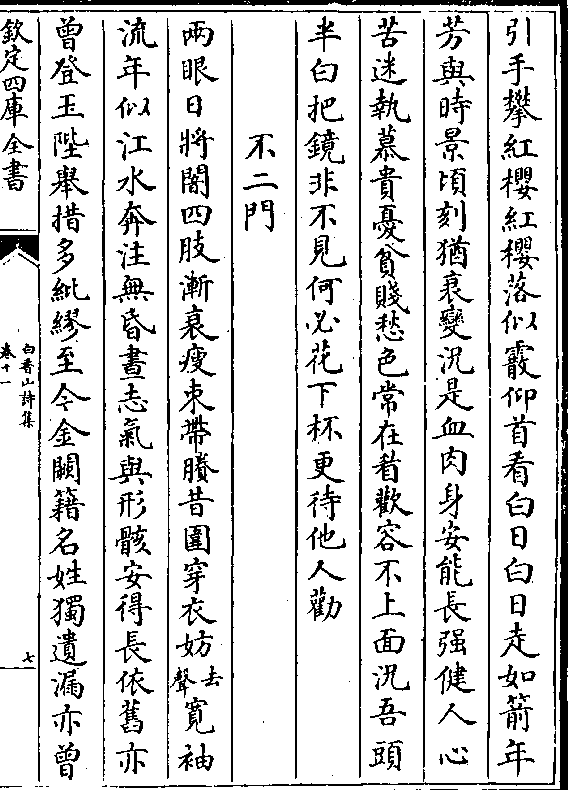 引手攀紅櫻紅櫻落似霰仰首看白日白日走如箭年
芳與時景頃刻猶衰變況是血肉身安能長强健人心
苦迷執慕貴憂貧賤愁色常在眉歡容不上面況吾頭
半白把鏡非不見何必花下杯更待他人勸
不二門
兩眼日將闇四肢漸衰瘦束帶賸昔圍穿衣妨去聲寛袖
流年似江水奔注無昏晝志氣與形骸安得長依舊亦
曾登玉陛舉措多紕繆至今金闕籍名姓獨遺漏亦曾
欽定四庫全書
白香山詩集
卷十一
七